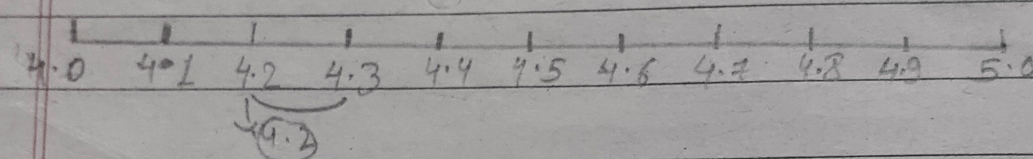 4.0 4.1 4.2 4.3 4.4 4.5 4.6 4.7 4.8 4.9 5.0
4.2